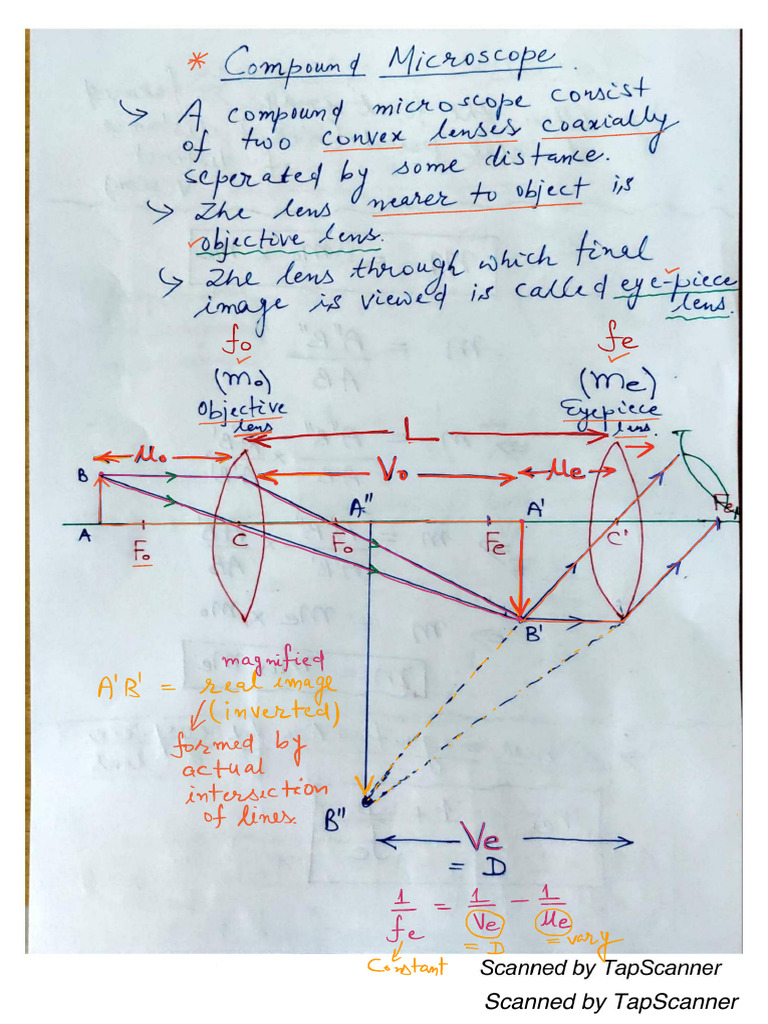 * Compound Microscope.
↳ A compound microscope consist
of two convex lenses coaxially
seperated by some distance.
↳ The lens nearer to object is
objective lens.
↳ The lens through which final
image is viewed is called eye-piece
lens.
fo fe
(mo) (me)
Objective lens Eyepiece lens.
L
uo Vo ue
B A" A'
A Fo C Fo Fe C' Fe
B'
magnified
A'B' = real image
(inverted)
formed by
actual
intersection
of lines.
B"
Ve
= D
1/fe = 1/Ve - 1/ue
= D = vary
Constant
Scanned by TapScanner
Scanned by TapScanner